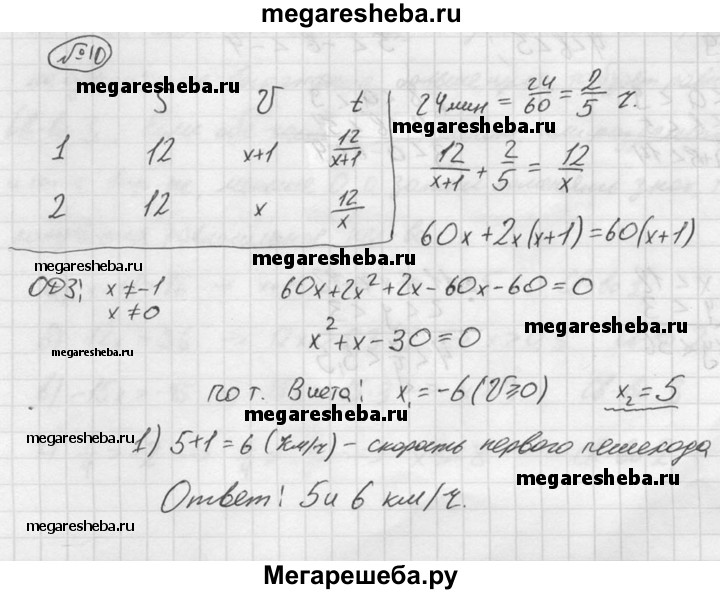 megaresheba.ru
№10
megaresheba.ru
S V t
1 12 x+1 12/(x+1)
2 12 x 12/x
24 мин = 24/60 = 2/5 ч.
megaresheba.ru
12/(x+1) + 2/5 = 12/x
60x+2x(x+1)=60(x+1)
megaresheba.ru
megaresheba.ru
ОДЗ: x≠-1
x≠0
60x+2x²+2x-60x-60=0
megaresheba.ru
x²+x-30=0
megaresheba.ru
по т. Виета: x₁=-6 (V≥0) x₂=5
megaresheba.ru
megaresheba.ru
1) 5+1=6 (км/ч) - скорость первого пешехода
megaresheba.ru
Ответ: 5 и 6 км/ч.
megaresheba.ru
Мегарешеба.ру